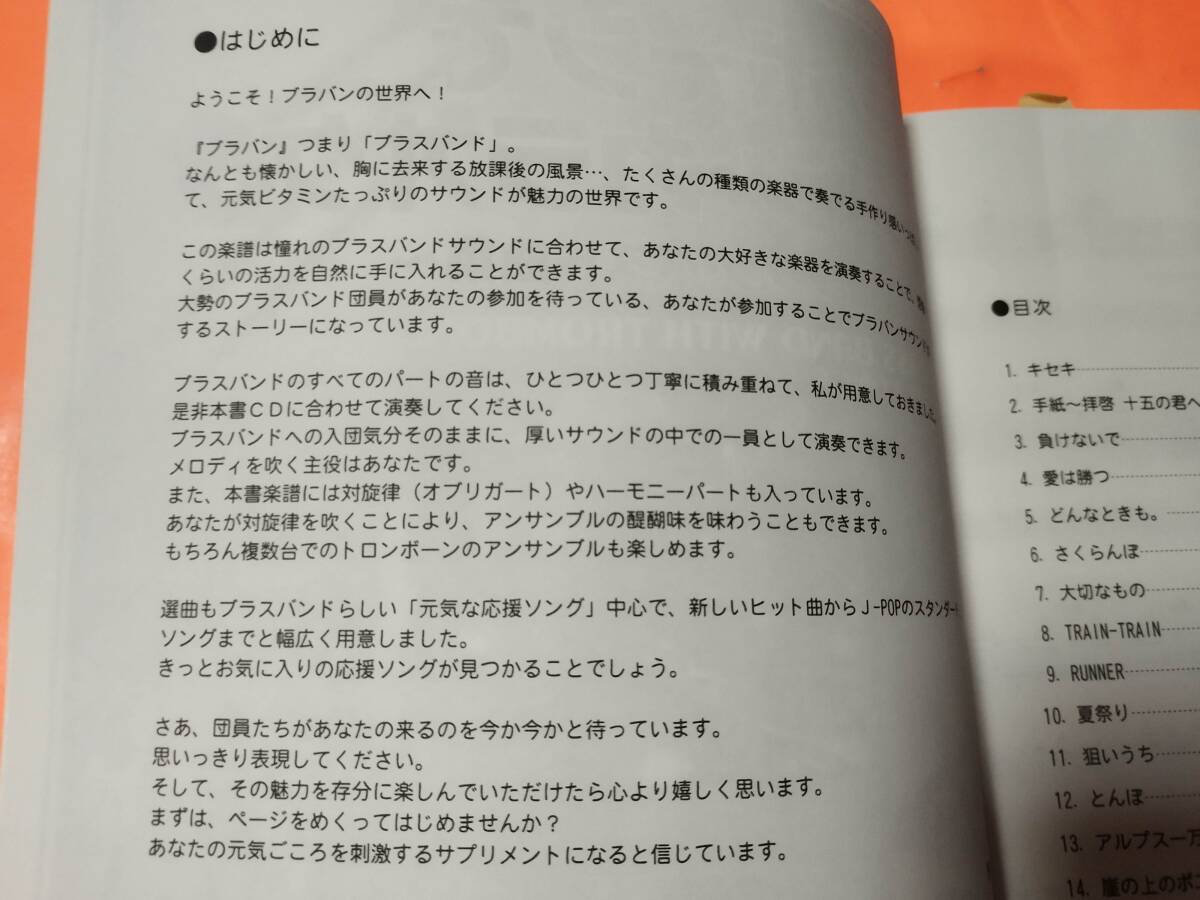 ●はじめに
ようこそ！ブラバンの世界へ！
『ブラバン』つまり「ブラスバンド」。
なんとも懐かしい、胸に去来する放課後の風景…、たくさんの種類の楽器で奏でる手作り感いっぱい
て、元気ビタミンたっぷりのサウンドが魅力の世界です。
この楽譜は憧れのブラスバンドサウンドに合わせて、あなたの大好きな楽器を演奏することで、
くらいの活力を自然に手に入れることができます。
大勢のブラスバンド団員があなたの参加を待っている、あなたが参加することでブラバンサウンドが
するストーリーになっています。
ブラスバンドのすべてのパートの音は、ひとつひとつ丁寧に積み重ねて、私が用意しておきました。
是非本書ＣＤに合わせて演奏してください。
ブラスバンドへの入団気分そのままに、厚いサウンドの中での一員として演奏できます。
メロディを吹く主役はあなたです。
また、本書楽譜には対旋律（オブリガート）やハーモニーパートも入っています。
あなたが対旋律を吹くことにより、アンサンブルの醍醐味を味わうこともできます。
もちろん複数台でのトロンボーンのアンサンブルも楽しめます。
選曲もブラスバンドらしい「元気な応援ソング」中心で、新しいヒット曲からＪ-POPのスタンダード
ソングまでと幅広く用意しました。
きっとお気に入りの応援ソングが見つかることでしょう。
さあ、団員たちがあなたの来るのを今か今かと待っています。
思いっきり表現してください。
そして、その魅力を存分に楽しんでいただけたら心より嬉しく思います。
まずは、ページをめくってはじめませんか？
あなたの元気ごころを刺激するサプリメントになると信じています。
●目次
1. キセキ
2. 手紙～拝啓 十五の君へ
3. 負けないで
4. 愛は勝つ
5. どんなときも。
6. さくらんぼ
7. 大切なもの
8. TRAIN-TRAIN
9. RUNNER
10. 夏祭り
11. 狙いうち
12. とんぼ
13. アルプス一万
14. 崖の上のポニ